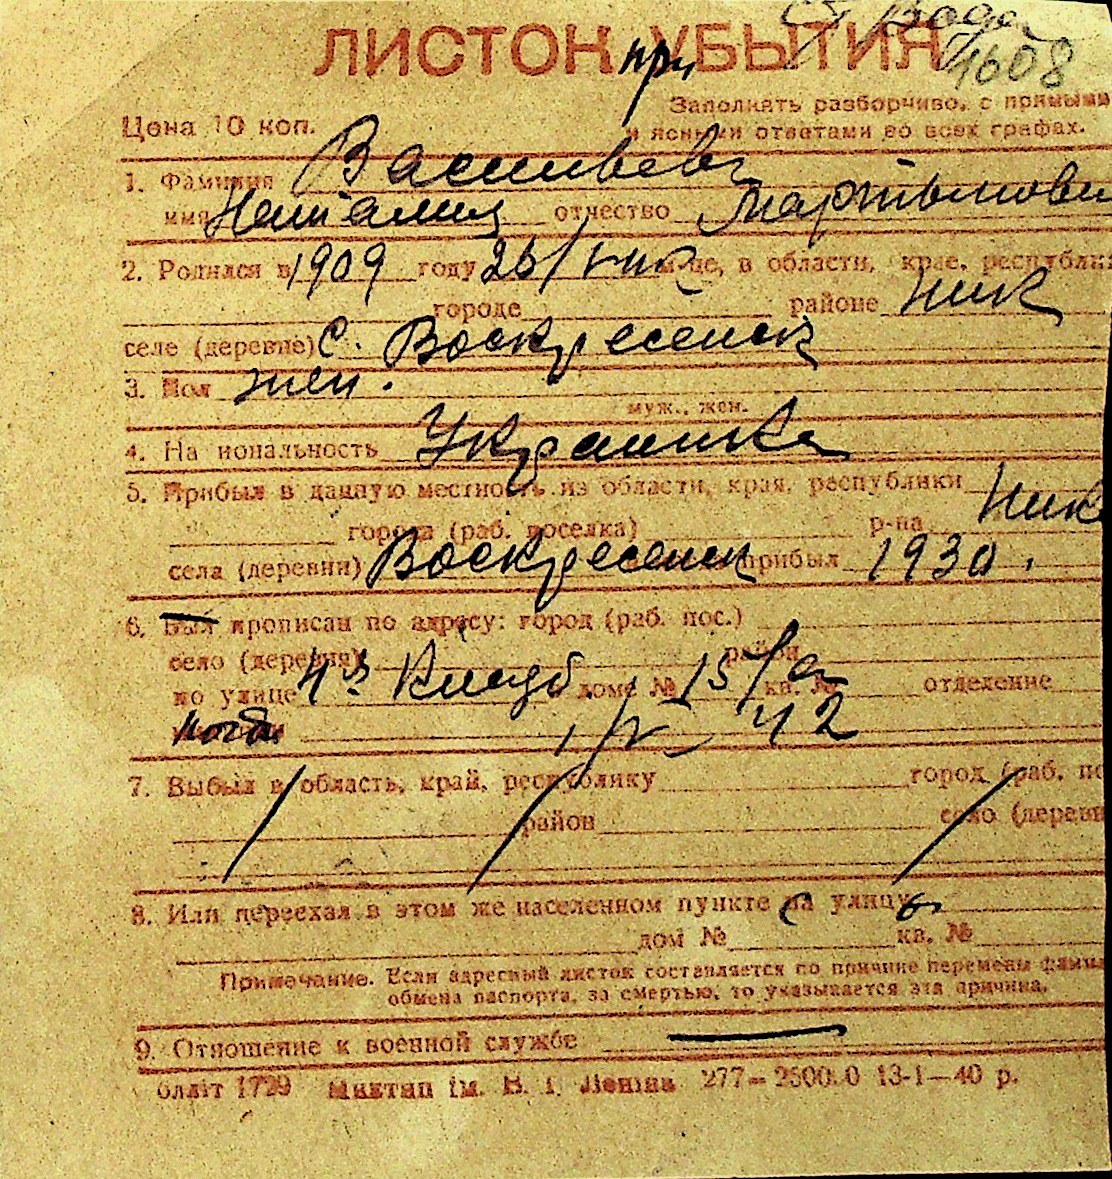 ЛИСТОК УБЫТИЯ
при
1608
Цена 10 коп.
Заполнять разборчиво, с прямыми
и ясными ответами во всех графах.
1. Фамилия Васильева
имя Наталия отчество Мартынови
2. Родился в 1909 году 26/ м-це, в области, крае, республике
городе районе Ник
селе (деревне) с. Воскресенск
3. Пол жен.
муж., жен.
4. Национальность Украинка
5. Прибыл в данную местность из области, края, республики
города (раб. поселка) р-на Ник
села (деревни) Воскресенск прибыл 1930.
6. Был прописан по адресу: город (раб. пос.)
село (деревня) район
по улице доме № 15/ кв. № отделение
42
7. Выбыл в область, край, республику город (раб. по
район село (деревн
8. Или переехал в этом же населенном пункте на улицу
дом № кв. №
Примечание. Если адресный листок составляется по причине перемены фами
обмена паспорта, за смертью, то указывается эта причина.
9. Отношение к военной службе
блліт 1729 ім. В. І. Леніна 277—250000 13-1—40 р.